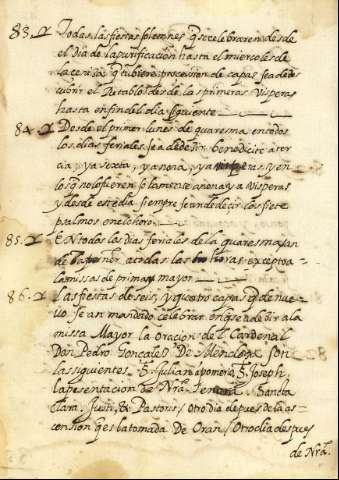 83. Todas las fiestas solemnes q̃ se celebraren desde
el Dia de la purificación hasta el miercoles de
la ceniza q̃ tubiere procesion de capas se a de des
cubrir el Retablo des de las primeras Visperas
hasta en fin del dia siguiente
84. Desde el primer lunes de quaresma en todos
los dias feriales se a de dezir benedicite a ter
cia, y a sexta, y a nona, y a visperas y en
los q̃ no lo fueren solamente a nona y a Visperas
y desde este dia siempre se an de decir los siete
psalmos en el choro
85. EN todos los Dias feriales de la quaresma se an
de a todas las horas excepto a
la missa de prima y mayor
86. Las fiestas de seis, y quatro capas q̃ de nue
vo se an mandado celebrar en q̃ se a de dezir a la
missa Mayor la Oracion del Cardenal
Don Pedro Gonçales De Mendoça son
las siguientes S. Jullian S. Joseph
la presentacion de Nrã. Señora, Sancta
Clara. Justi, & Pastoris, Otro dia depues de la as-
censión q̃ es la tomada De Oran, Otro dia despues
de Nrã.